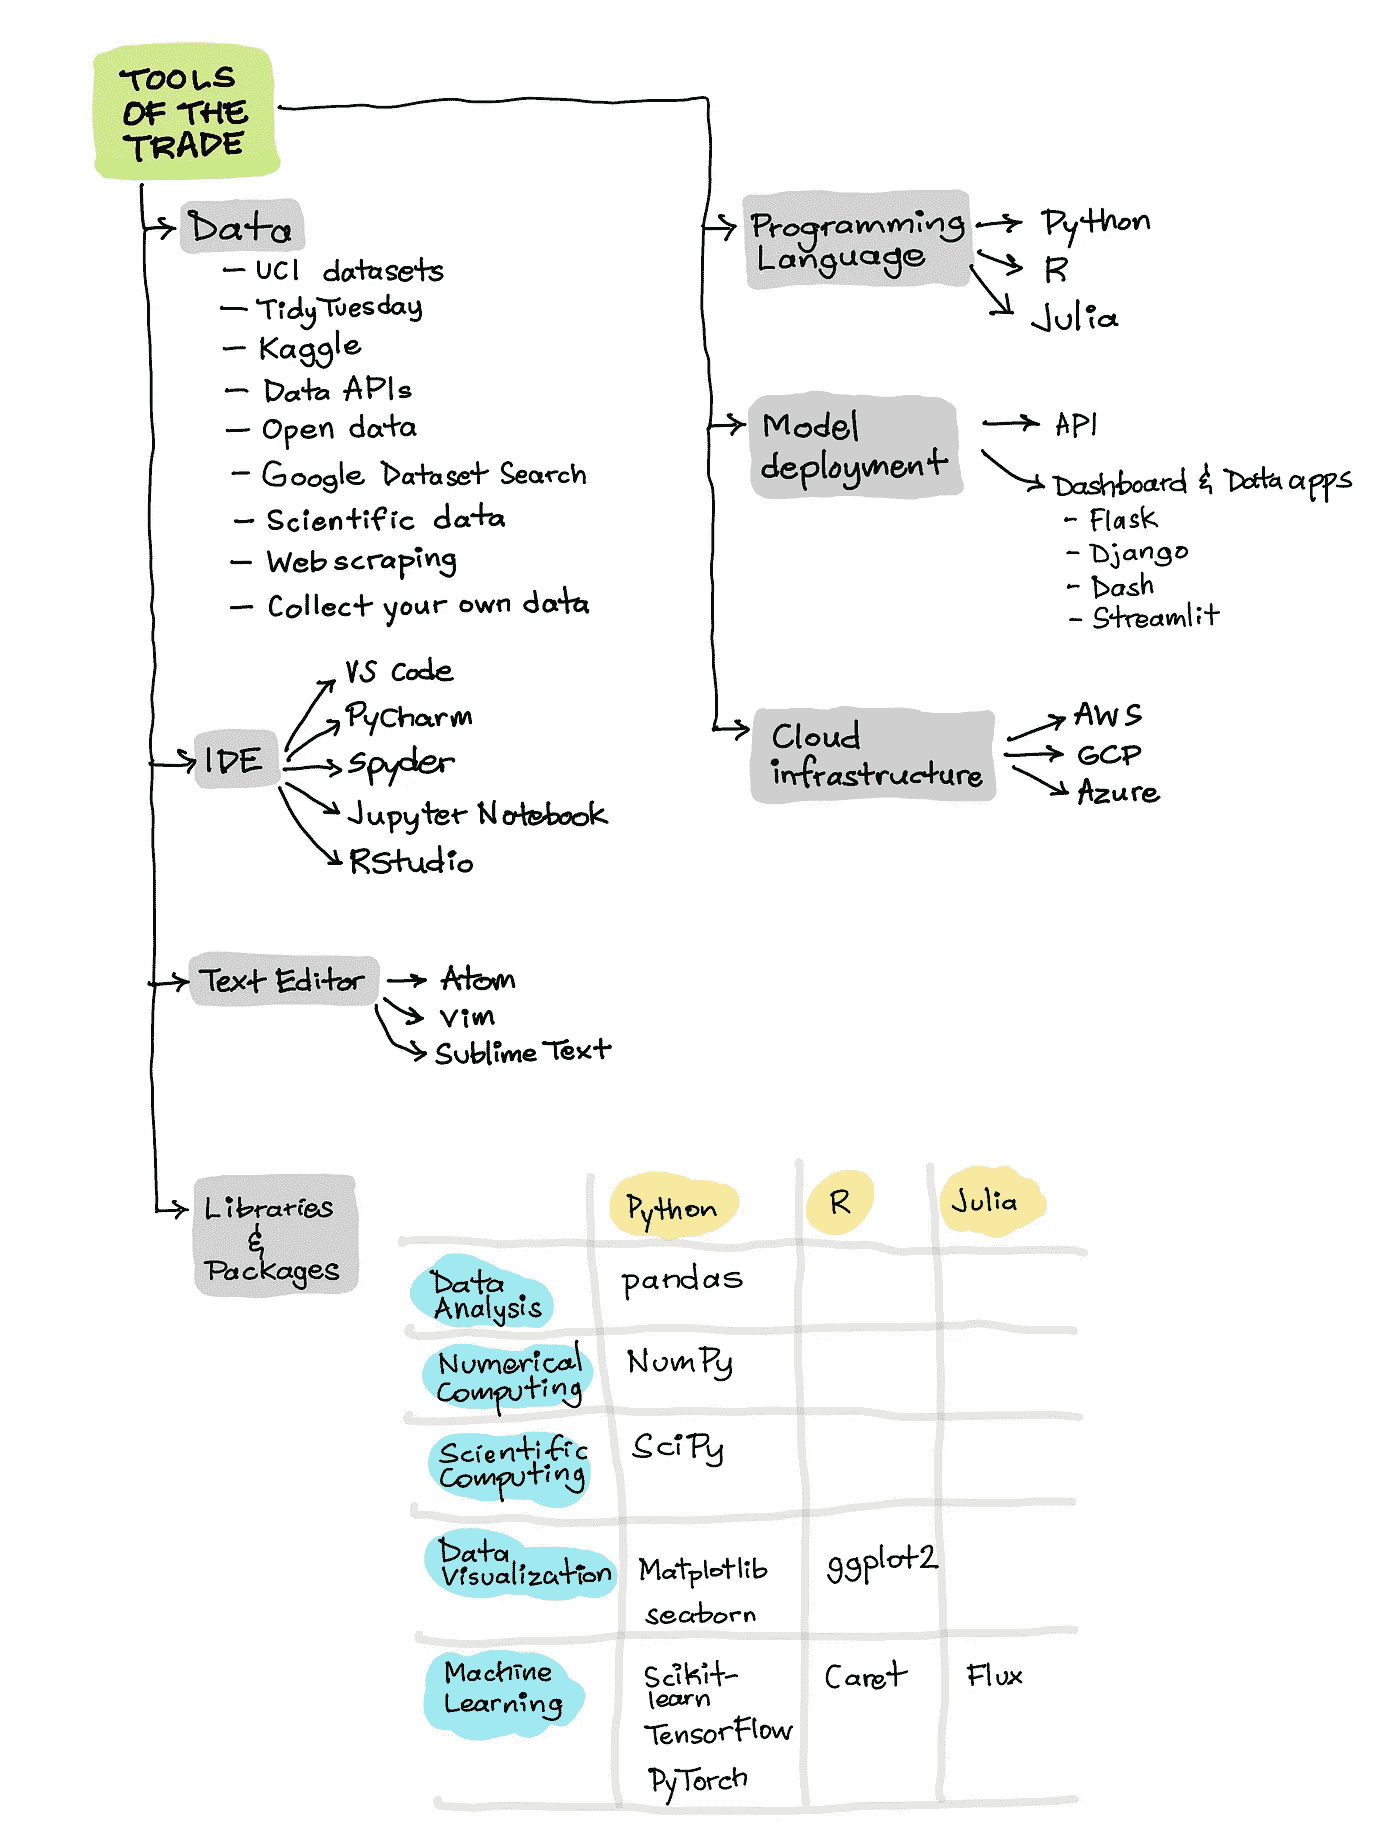 TOOLS
OF THE
TRADE
Data
- UCI datasets
- TidyTuesday
- Kaggle
- Data APIs
- Open data
- Google Dataset Search
- Scientific data
- Web scraping
- Collect your own data
IDE
VS Code
PyCharm
Spyder
Jupyter Notebook
RStudio
Text Editor
Atom
Vim
Sublime Text
Programming
Language
Python
R
Julia
Model
deployment
API
Dashboard & Data apps
- Flask
- Django
- Dash
- Streamlit
Cloud
infrastructure
AWS
GCP
Azure
Libraries
&
Packages
Python
R
Julia
Data
Analysis
pandas
Numerical
Computing
NumPy
Scientific
Computing
SciPy
Data
Visualization
Matplotlib
seaborn
ggplot2
Machine
Learning
Scikit-
learn
TensorFlow
PyTorch
Caret
Flux